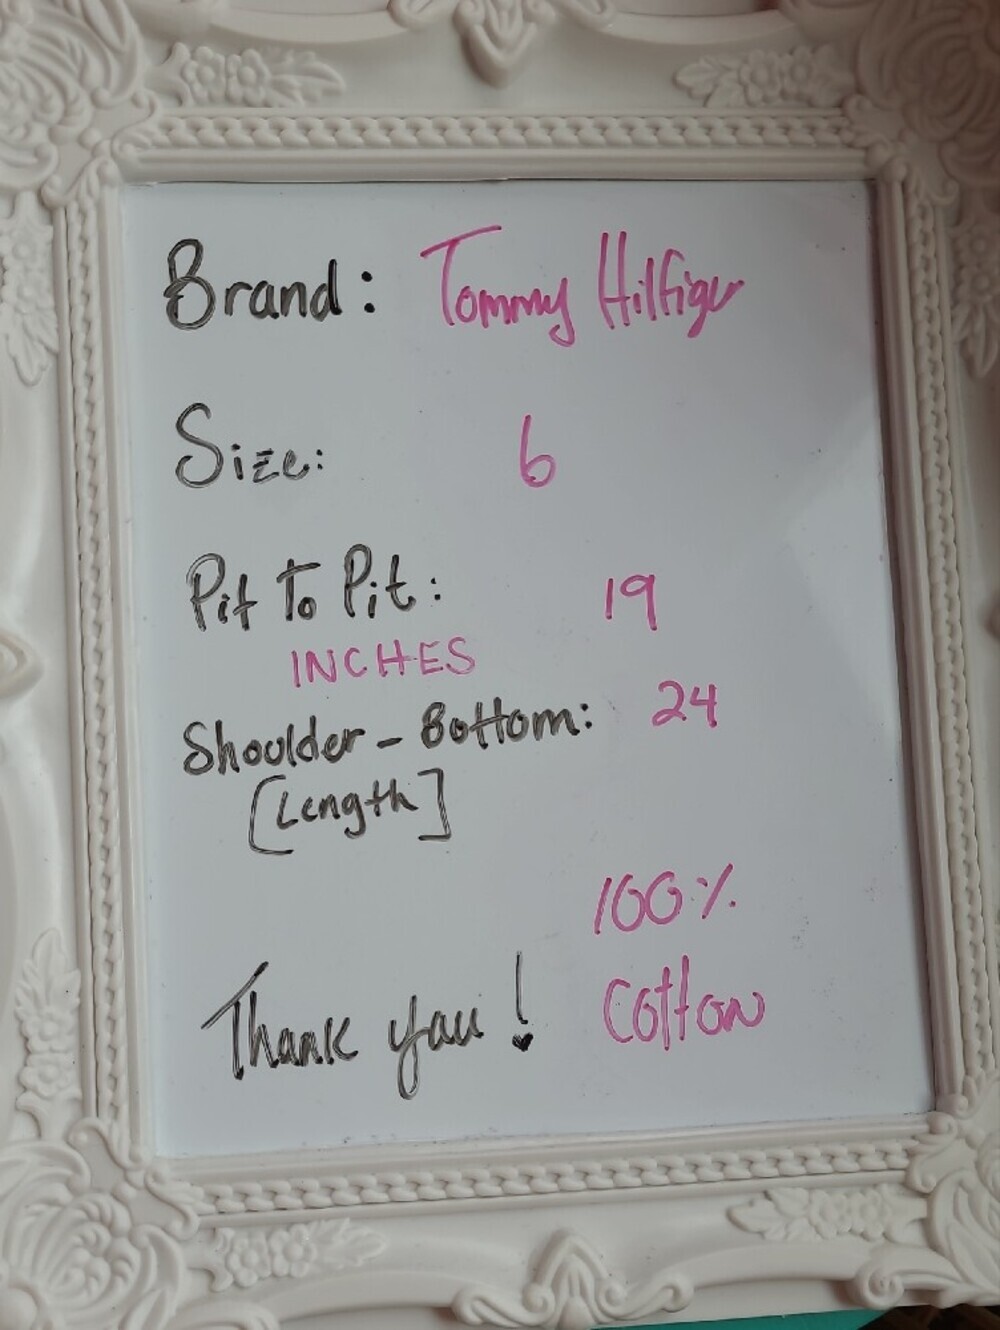 Brand: Tommy Hilfiger
Size: 6
Pit To Pit: 19
INCHES
Shoulder - Bottom: 24
[Length]
100%
Thank you! Cotton